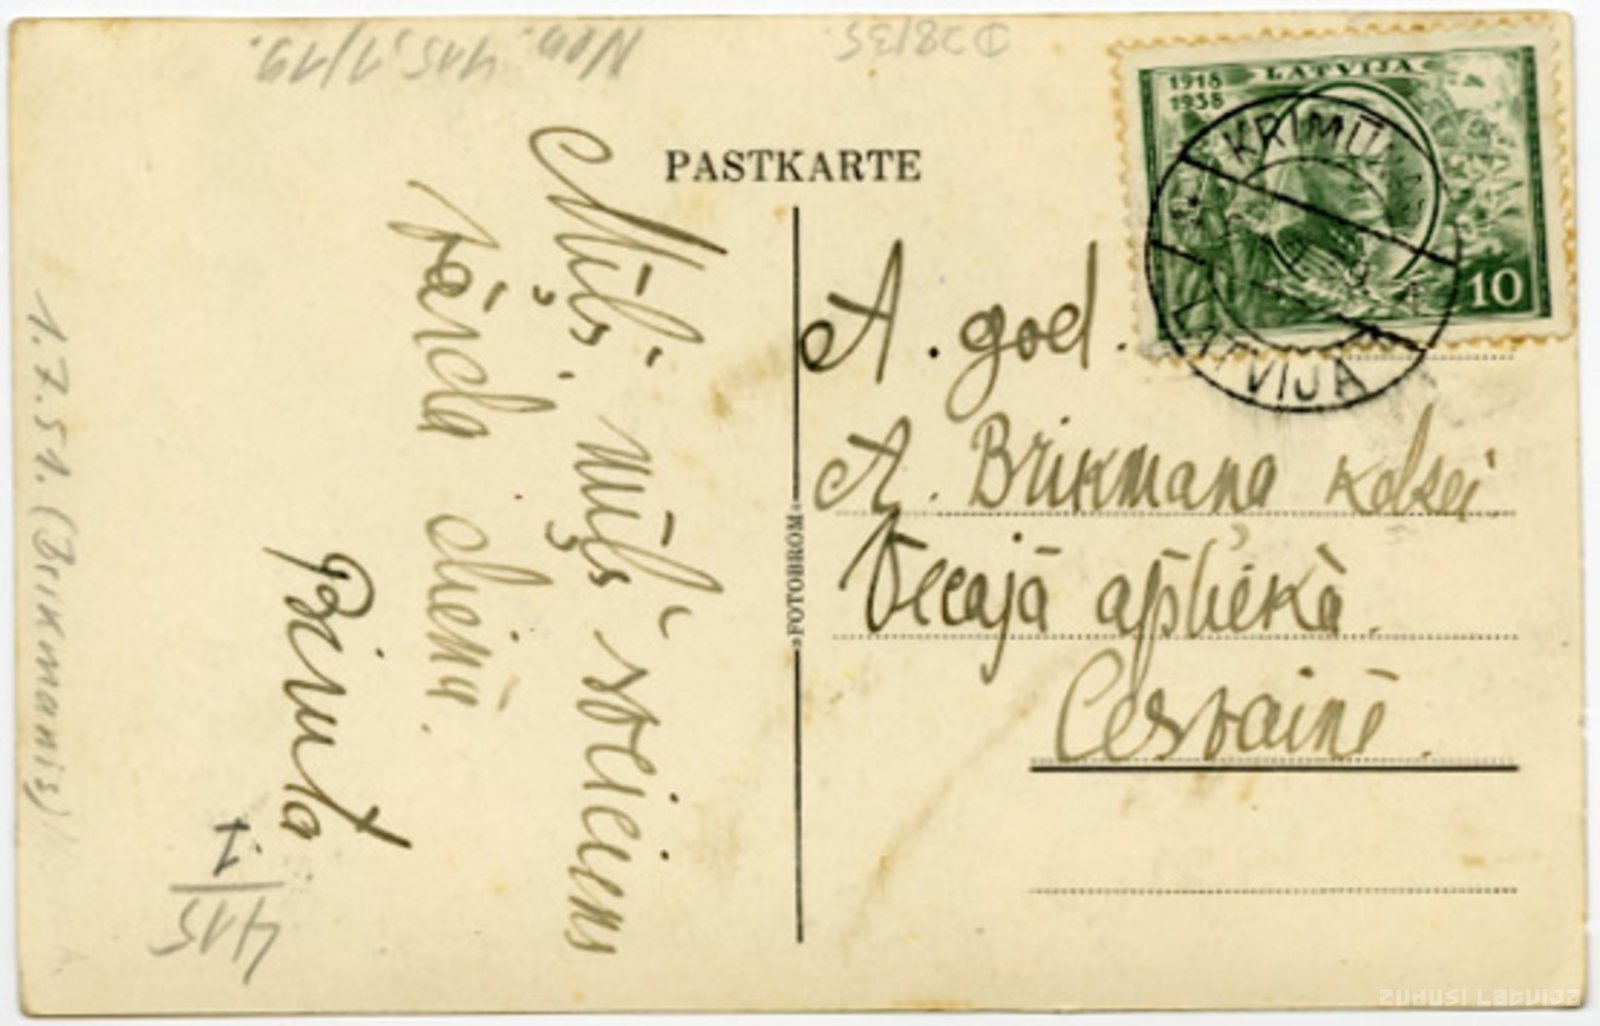 Nov. 415,1/19.
D 28/35.
PASTKARTE
1918
1938
LATVIJA
10
KRIMŪ
LATVIJA
Mīļš, mīļš sveiciens
vārda dienā.
Biruta
A. god.
A. Brikmana kdzei
Vecajā aptiekā.
Cesvainē.
»FOTOBROM«
1.7.51. (Brikmanis)
415/1
ZUDUSI LATVIJA